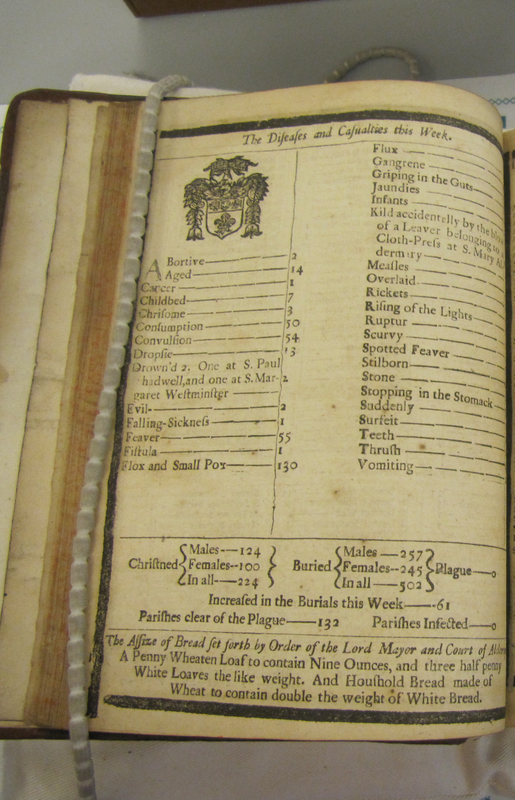 The Diſeaſes and Caſualties this Week.
ABortive 2
Aged 14
Cancer 1
Childbed 7
Chriſome 3
Conſumption 50
Convulſion 54
Dropſie 13
Drown'd 2. One at S. Paul
hadwell, and one at S. Mar- 2
garet Weſtminſter
Evil 2
Falling-Sickneſs 1
Feaver 55
Fiſtula 1
Flox and Small Pox 130
Flux
Gangrene
Griping in the Guts
Jaundies
Infants
Kild accidentelly by the
of a Leaver belonging to
Cloth-Preſs at S. Mary Al
dermary
Meaſles
Overlaid
Rickets
Riſing of the Lights
Ruptur
Scurvy
Spotted Feaver
Stilborn
Stone
Stopping in the Stomack
Suddenly
Surfeit
Teeth
Thruſh
Vomiting
Chriſtned { Males 124
Females 100
In all 224 }
Buried { Males 257
Females 245
In all 502 } Plague 0
Increaſed in the Burials this Week 61
Pariſhes clear of the Plague 132 Pariſhes Infected 0
The Aſſize of Bread ſet forth by Order of the Lord Mayor and Court of Alderm
A Penny Wheaten Loaf to contain Nine Ounces, and three half penny
White Loaves the like weight. And Houſhold Bread made of
Wheat to contain double the weight of White Bread.